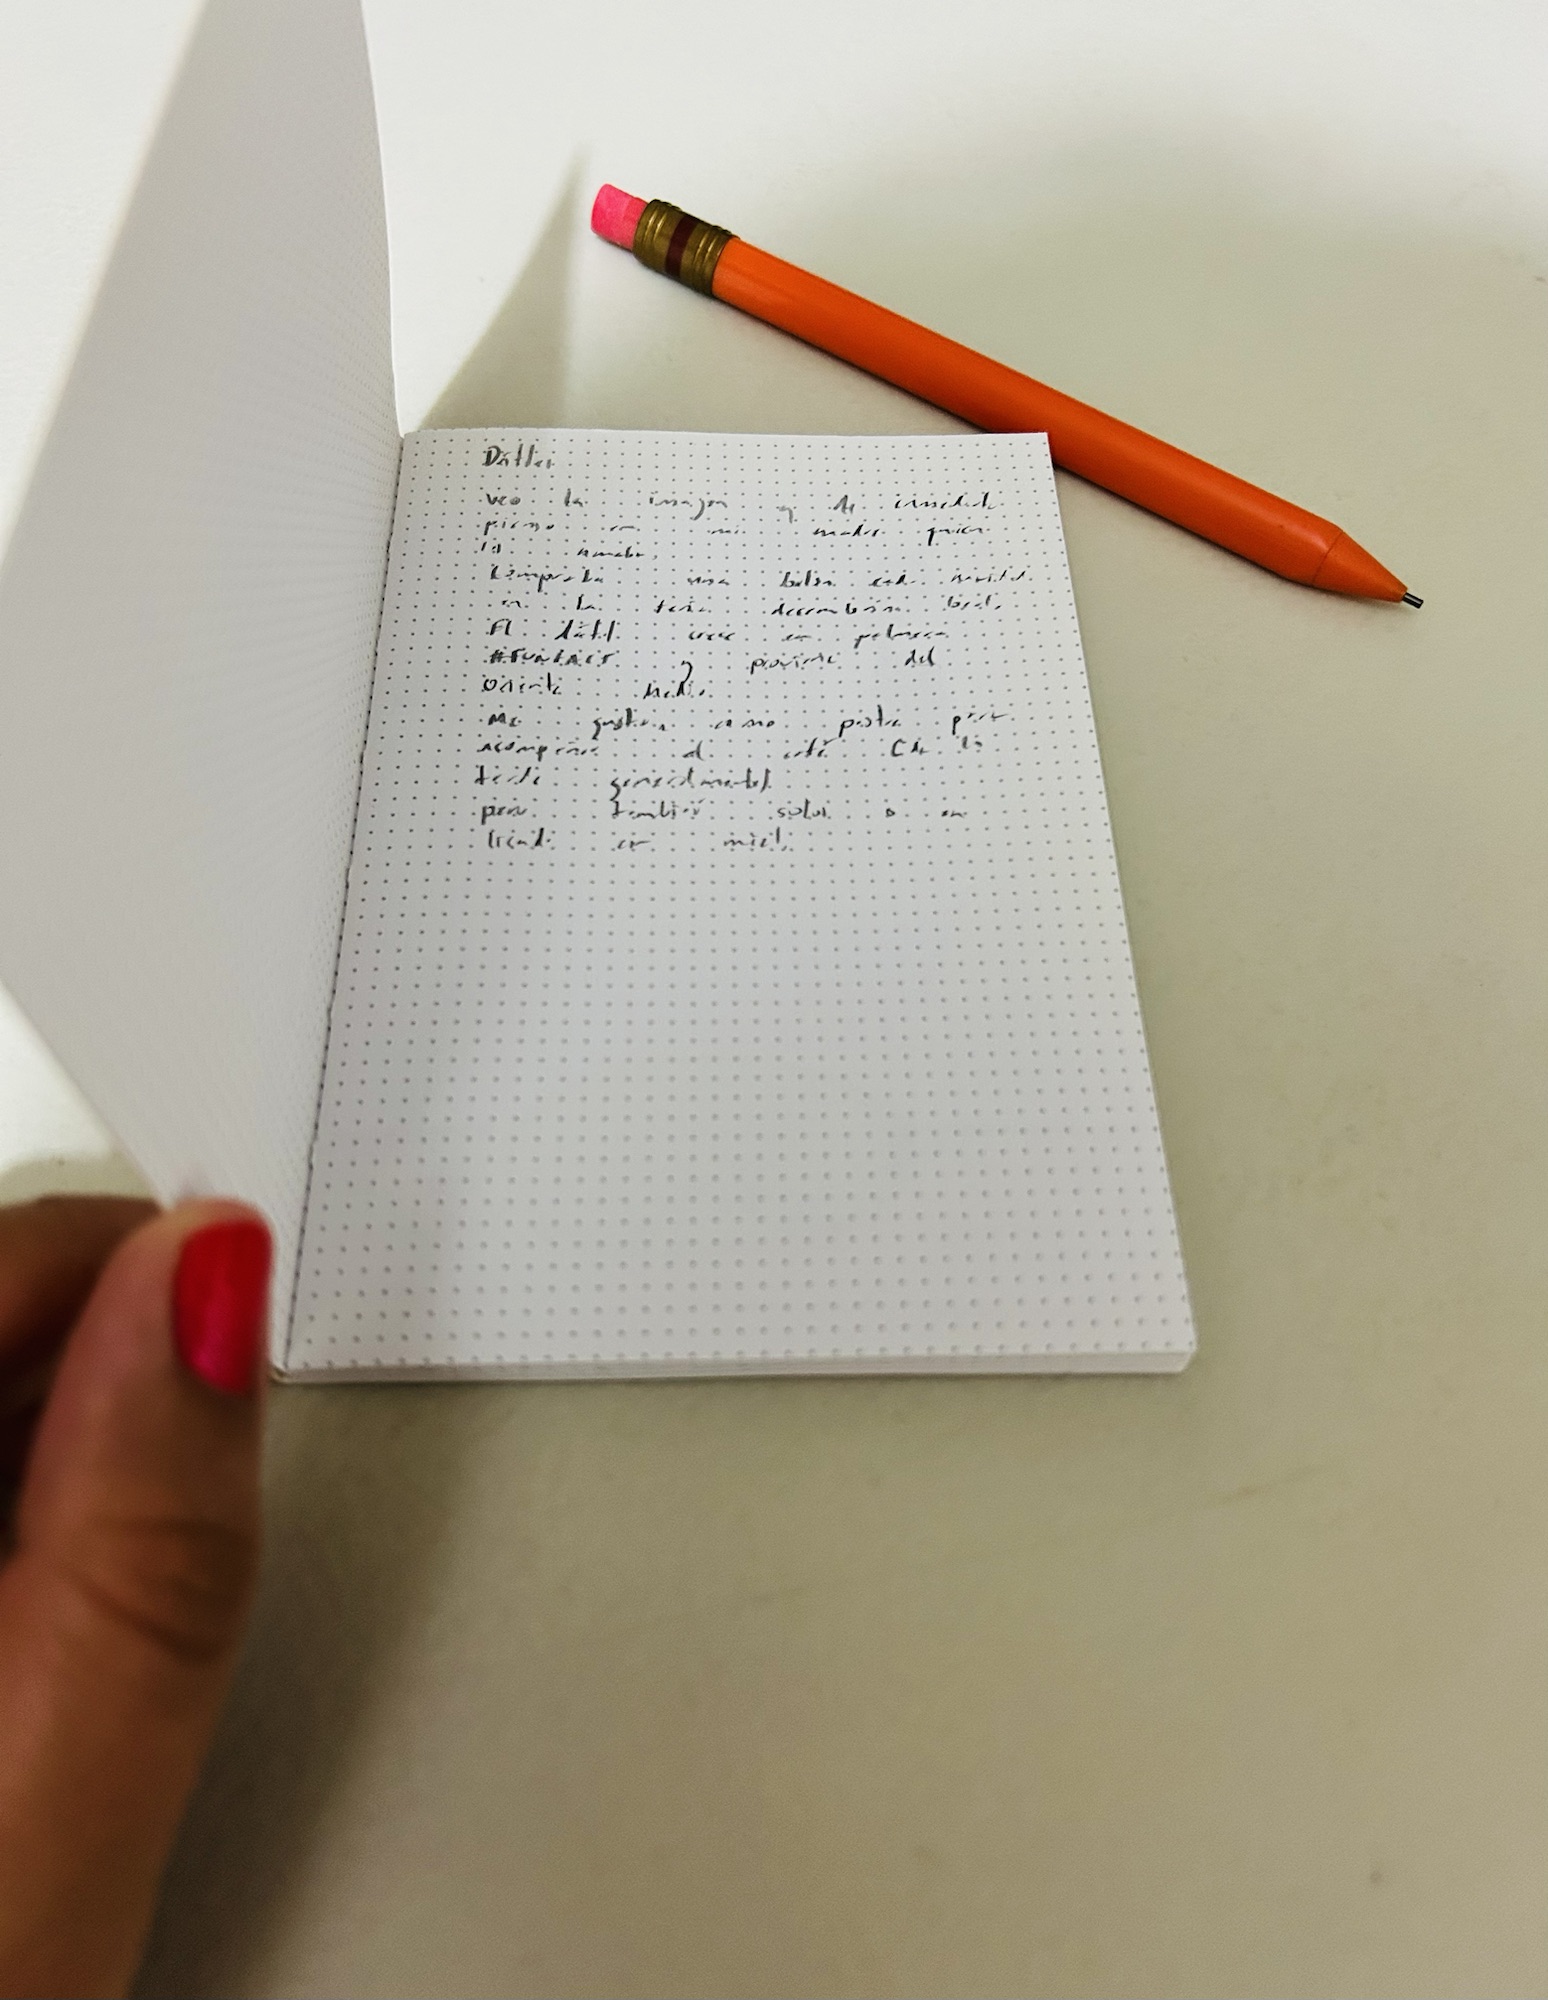 Dátiles
Veo la imagen y de inmediato
pienso en mi madre quien
la amaba.
Compraba una bolsa cada navidad
en la feria decembrina local.
El dátil crece en palmeras
#FUNFACT y proviene del
Oriente Medio.
Me gustan como postre para
acompañar el café (de la
tarde generalmente)
pero también solos o en
licuado con miel.